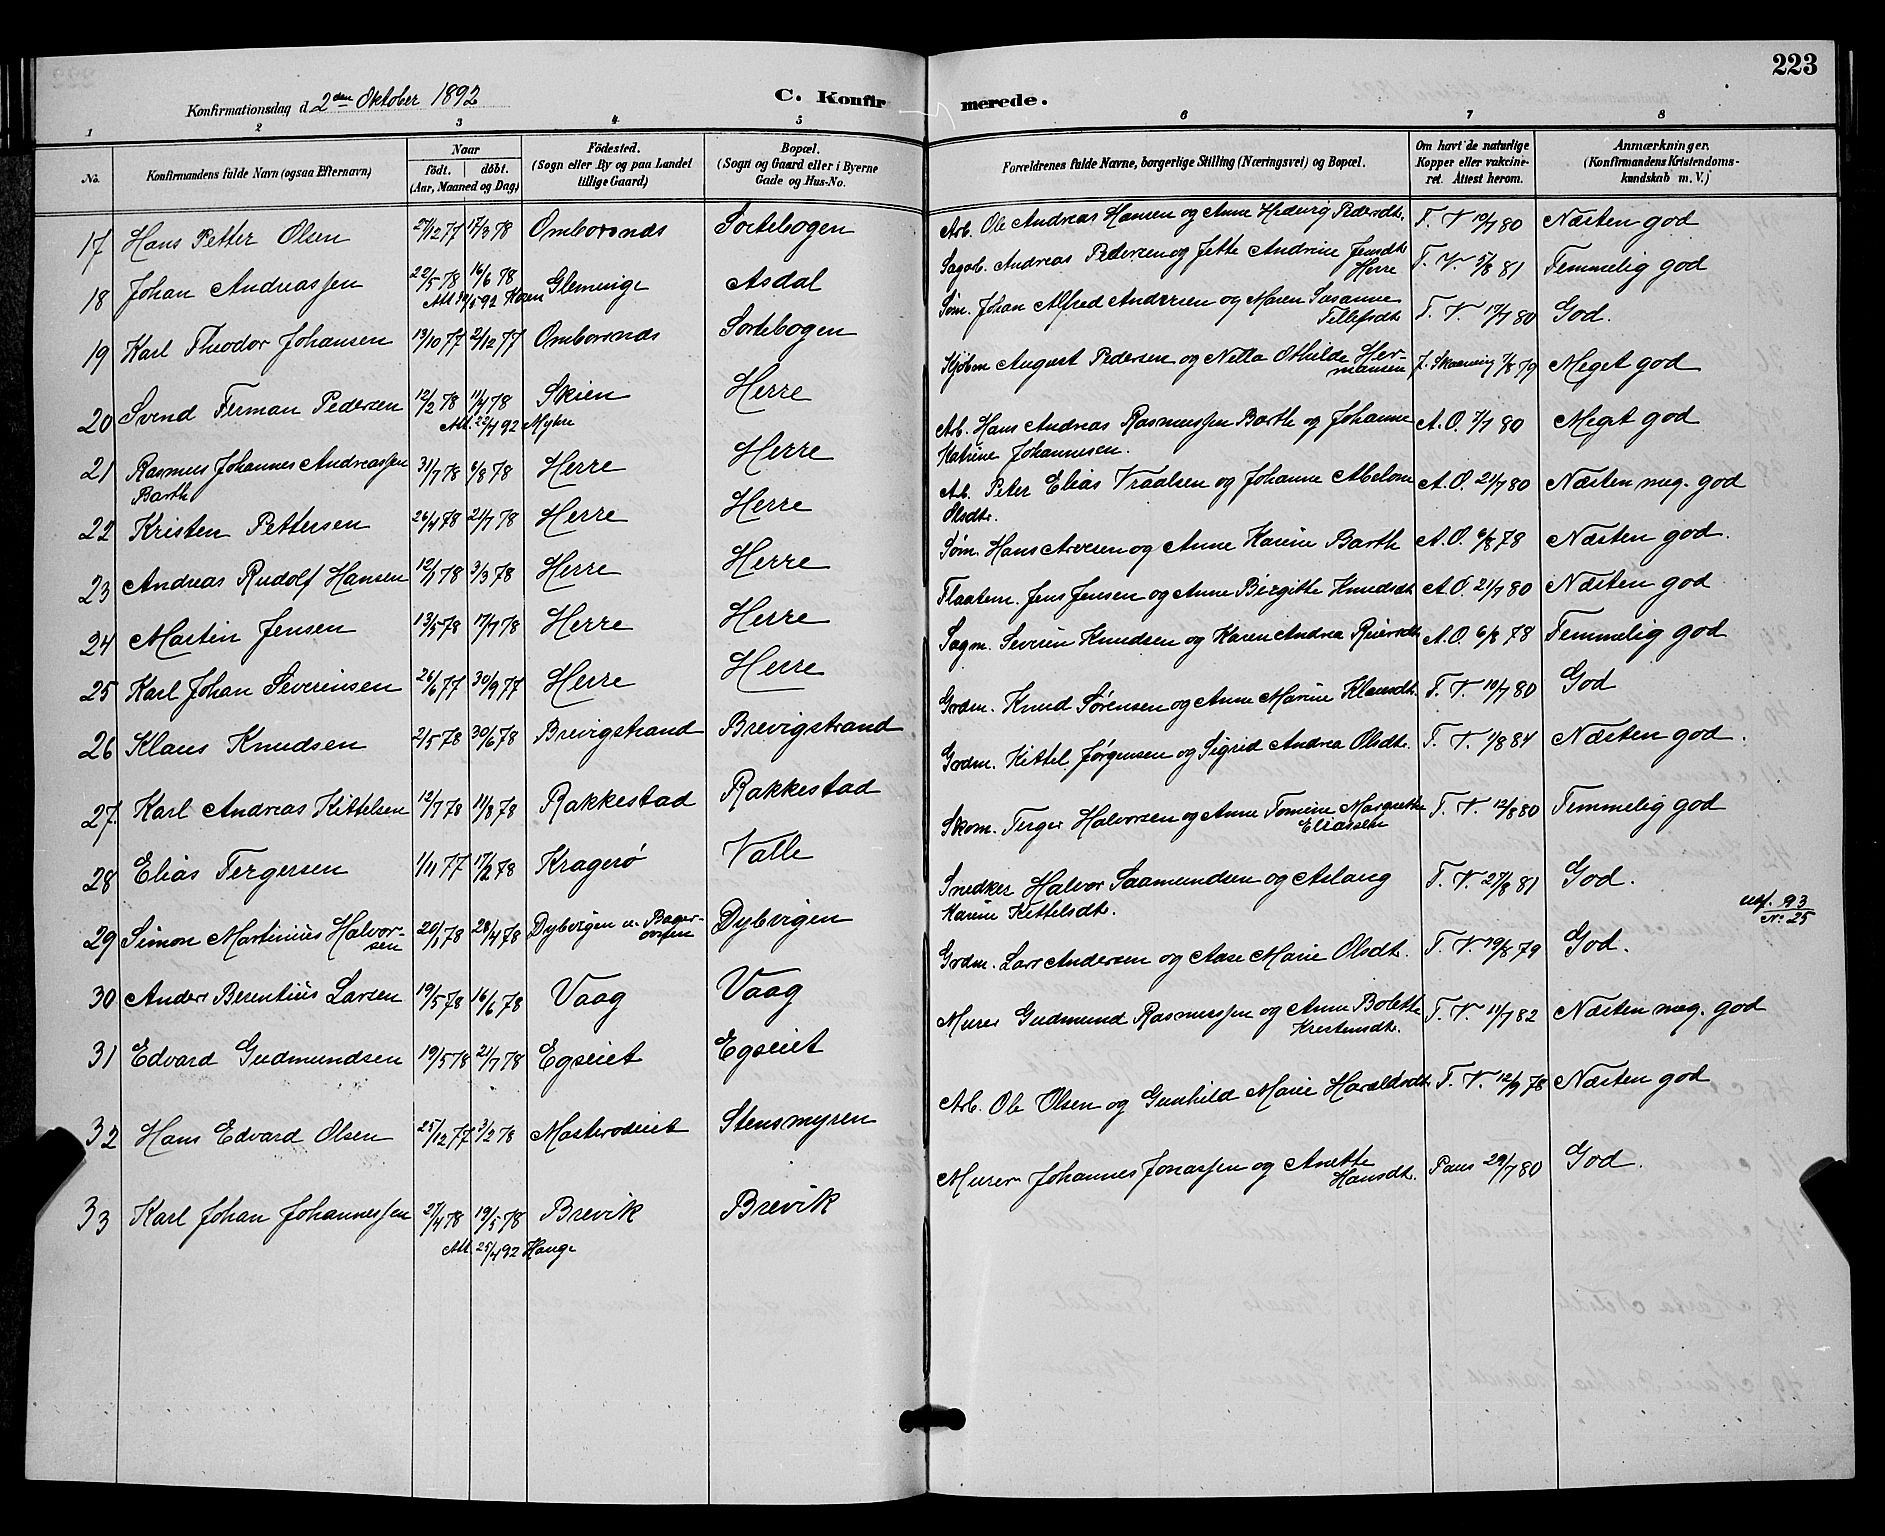 223
Konfirmationsdag d. 2den Oktober 1892
C. Konfirmerede.
1 2 3 4 5 6 7 8
No. Konfirmandens fulde Navn (ogsaa Efternavn) Naar födt. döbt. (Aar, Maaned og Dag) Födested. (Sogn eller By og paa Landet tillige Gaard) Bopæl. (Sogn og Gaard eller i Byerne Gade og Hus-No. Forældrenes fulde Navne, borgerlige Stilling (Næringsvei) og Bopæl. Om havt de naturlige Kopper eller vakcineret. Attest herom. Anmærkninger. (Konfirmandens Kristendomskundskab m. V.)
17 Hans Petter Olsen 27/12 77 17/3 78 Omborsnds Sortebogen Arb. Ole Andreas Hansen og Anne Hedvig Pedersdt. T. V. 19/7 80 Næsten god
18 Johan Andreassen 22/5 78 16/6 78 Gleminge Asdal Sagarb. Andreas Pedersen og Jette Andrine Jensdt. Herre T. V. 5/8 81 Temmelig god
19 Karl Theodor Johansen 13/10 77 2/12 77 Omborsnds Sortebogen Søm. Johan Alfred Andersen og Maren Susanne Tellefsdt. T. V. 19/7 80 God.
20 Svend Ferman Pedersen 12/2 78 11/4 78 Skien Herre Kjøbm August Pedersen og Netta Othilde Hermansen 7/8 79 Meget god
Att. 22/4 92
21 Rasmus Johannes Andreassen Barth 31/7 78 6/8 78 Herre Herre Arb. Hans Andreas Rasmussen Barth og Johanne Katrine Johannesen. A. O. 7/7 80 Meget god
22 Kristen Pettersen 26/4 78 21/7 78 Herre Herre Ab. Peter Elias Vraalsen og Johanne Abelone Olsdt. A. O. 21/7 80 Næsten meg. god
23 Andreas Rudolf Hansen 12/1 78 3/3 78 Herre Herre Søm. Hans Aresen og Anne Karine Barth A. O. 6/8 78 Næsten god.
24 Martin Jensen 13/5 78 17/7 78 Herre Herre Flaatem. Jens Jensen og Anne Birgitte Knudsdt A. O. 21/7 80 Næsten god
25 Karl Johan Severinsen 26/6 77 30/9 77 Herre Herre Sagm. Severin Knudsen og Karen Andrea Reiersdt A. O. 6/8 78 Temmelig god
26 Klaus Knudsen 2/5 78 30/6 78 Brevigstrand Brevigstrand Grdm. Knud Sørensen og Anne Marine Klausdt. T. V. 19/7 80 God
27. Karl Andreas Kittelsen 12/7 78 11/8 78 Rakkestad Rakkestad Grdm. Kittel Jørgensen og Sigrid Andrea Olsdt. T. V. 1/8 84 Næsten god.
28 Elias Tergersen 1/11 77 17/2 78 Kragerö Valle Skom. Terger Halvorsen og Anne Tomine Margrethe Eliassen T. V. 12/8 80 Temmelig god
29 Simon Martinius Halvorsen 20/1 78 28/4 78 Dybvigen u. Dybvigen Snedker Halvor Saamundsen og Aslaug Karine Kittelsdt. T. V. 27/8 81 God.
utf. 93 No 25
30 Anders Berentius Larsen 19/5 78 16/6 78 Vaag Vaag Grdm. Lars Andersen og Aase Marie Olsdt. T. V. 19/8 79 God.
31 Edvard Gudmundsen 19/5 78 21/7 78 Egseiet Egseiet Murer Gudmund Rasmussen og Anne Bolette Kristensdt. T. V. 11/7 82 Næsten meg. god
32 Hans Edvard Olsen 25/12 77 3/2 78 Mosterødeiet Stensmyren Arb. Ole Olsen og Gunhild Marie Haraldsdt T. V. 12/9 78 Næsten god
33 Karl Johan Johannessen 27/4 78 19/5 78 Brevik Brevik Murer Johannes Jonassen og Anette Hansdt. Paus 29/7 80 God.
Att. 25/4 92 Hauge